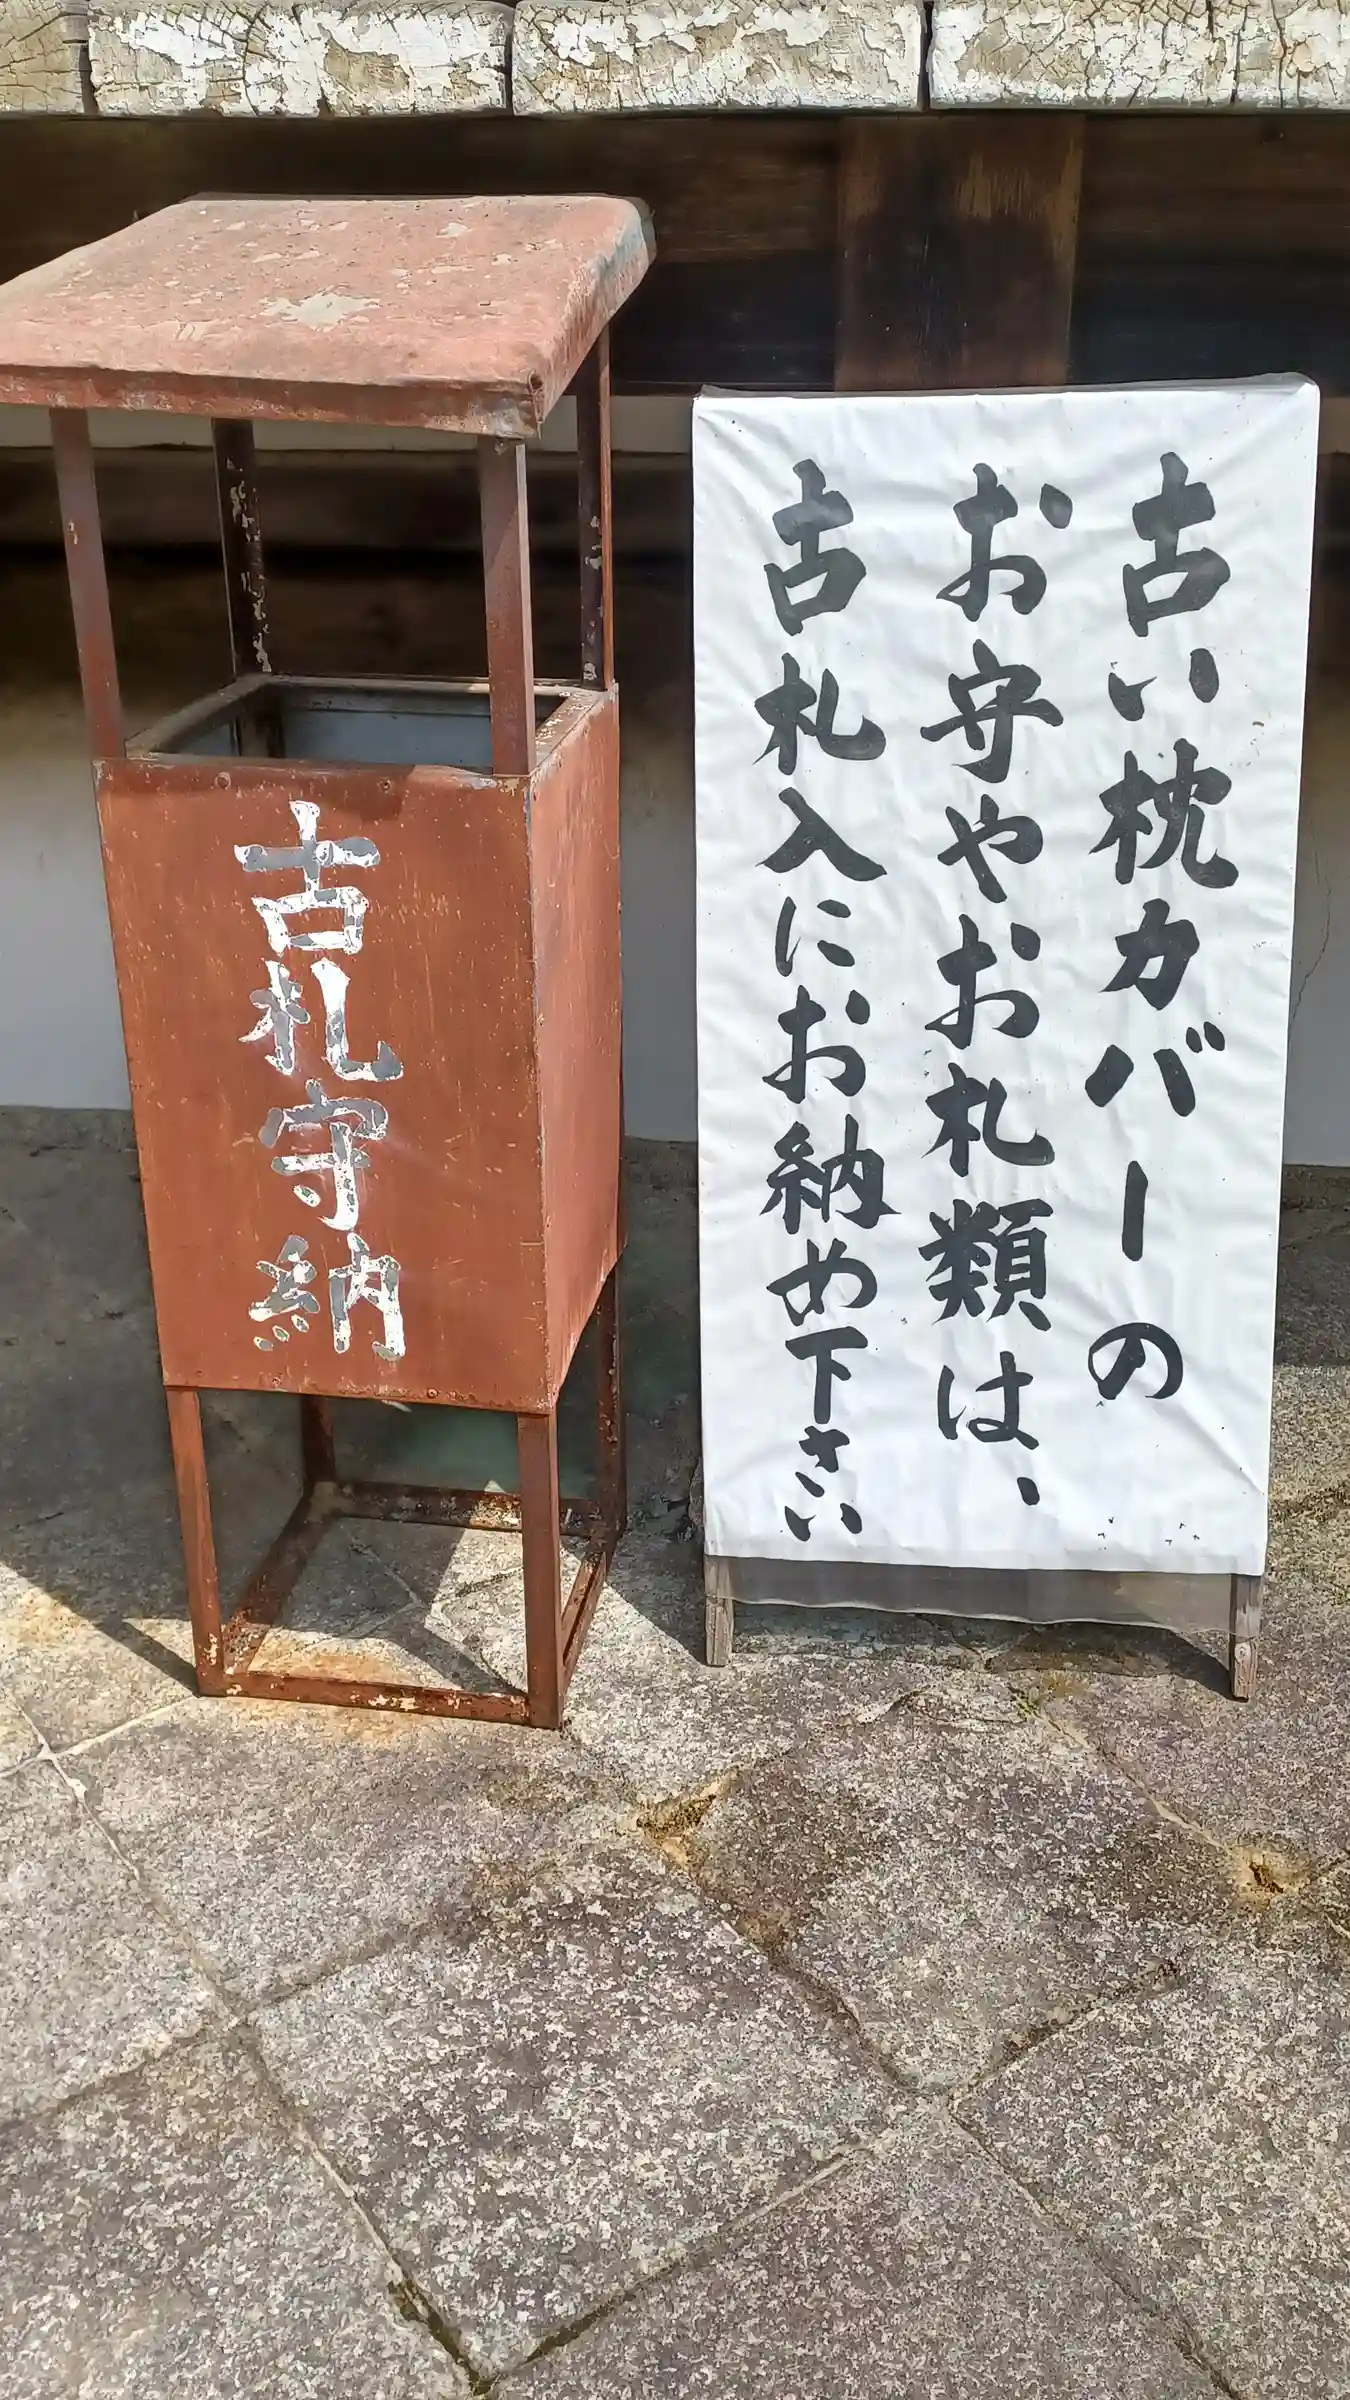 古札守納
古い枕カバーの
お守やお札類は、
古札入にお納め下さい